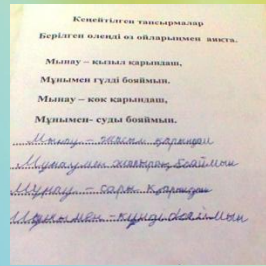 Кеңейтілген тапсырмалар
Берілген өлеңді өз ойларыңмен аяқта.
Мынау – қызыл қарындаш,
Мұнымен гүлді бояймын.
Мынау – көк қарындаш,
Мұнымен- суды бояймын.
Мынау – жасыл қарындаш
Мұнымен жапырақ бояймын
Мұнау – сары қарындаш
Мұнымен – күнді бояймын